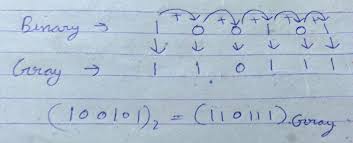 Binary → 1 + 0 + 0 + 1 + 0 + 1
↓ ↓ ↓ ↓ ↓ ↓
Gray → 1 1 0 1 1 1
(100101)₂ = (110111)Gray